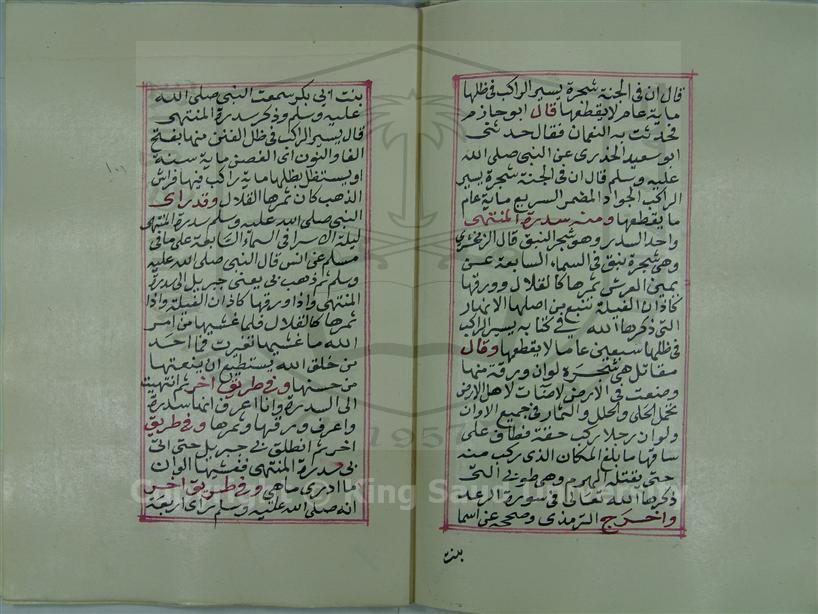 قال ان في الجنة شجرة يسير الراكب في ظلها
ماية عام لا يقطعها قال ابو حازم
فحدثت به النعمان فقال حدثني
ابو سعيد الخذري عن النبي صلى الله
عليه وسلم قال ان في الجنة شجرة يسير
الراكب الجواد المضمر السريع ماية عام
ما يقطعها ومنه سدرة المنتهى
واحد السدر وهي شجر النبق قال الزمخشري
وهي شجرة نبق في السماء السابعة عن
يمين العرش ثمرها كالقلال وورقها
كاذان الفيلة تنبع من اصلها الانهار
التي ذكرها الله في كتابه يسير الراكب
في ظلها سبعين عاما لا يقطعها وقال
مقاتل هي شجرة لو ان ورقة منها
وضعت في الارض لاضات لاهل الارض
تحمل الحلي والحلل والثمار في جميع الاوان
ولو ان رجلا ركب حقة فطاف على
ساقها ما بلغ المكان الذي ركب منه
حتى يقتله الهرم وهي طوبى التي
ذكرها الله تعالى في سورة الرعد
واخرج الترمذي وصححه عن اسما
بنت
بنت ابي بكر سمعت النبي صلى الله
عليه وسلم وذكر سدرة المنتهى
قال يسير الراكب في ظل الفنن منها بفتح
الفا والنون اى الغصن ماية سنة
او يستظل بظلها ماية راكب فيها فراش
الذهب كان ثمرها القلال وقد راى
النبي صلى الله عليه وسلم سدرة المنتهى
ليلة اسرا في السماء السابعة على ما في
مسلم عن انس قال النبي صلى الله عليه
وسلم ثم ذهب بى يعنى جبريل الى سدرة
المنتهى واذا ورقها كاذان الفيلة واذا
ثمرها كالقلال فلما غشيها من امر
الله ما غشيها تغيرت فما احد
من خلق الله يستطيع ان ينعتها
من حسنها وفي طريق اخر ثم انتهيت
الى السدرة وانا اعرف انها سدرة
واعرف ورقها وثمرها وفي طريق
اخر ثم انطلق بي جبريل حتى اتى
بي سدرة المنتهى فغشيها الوان
ما ادرى ما هي وفي طريق اخر
انه صلى الله عليه وسلم راى اربعة
1957
Copyright © King Saud University